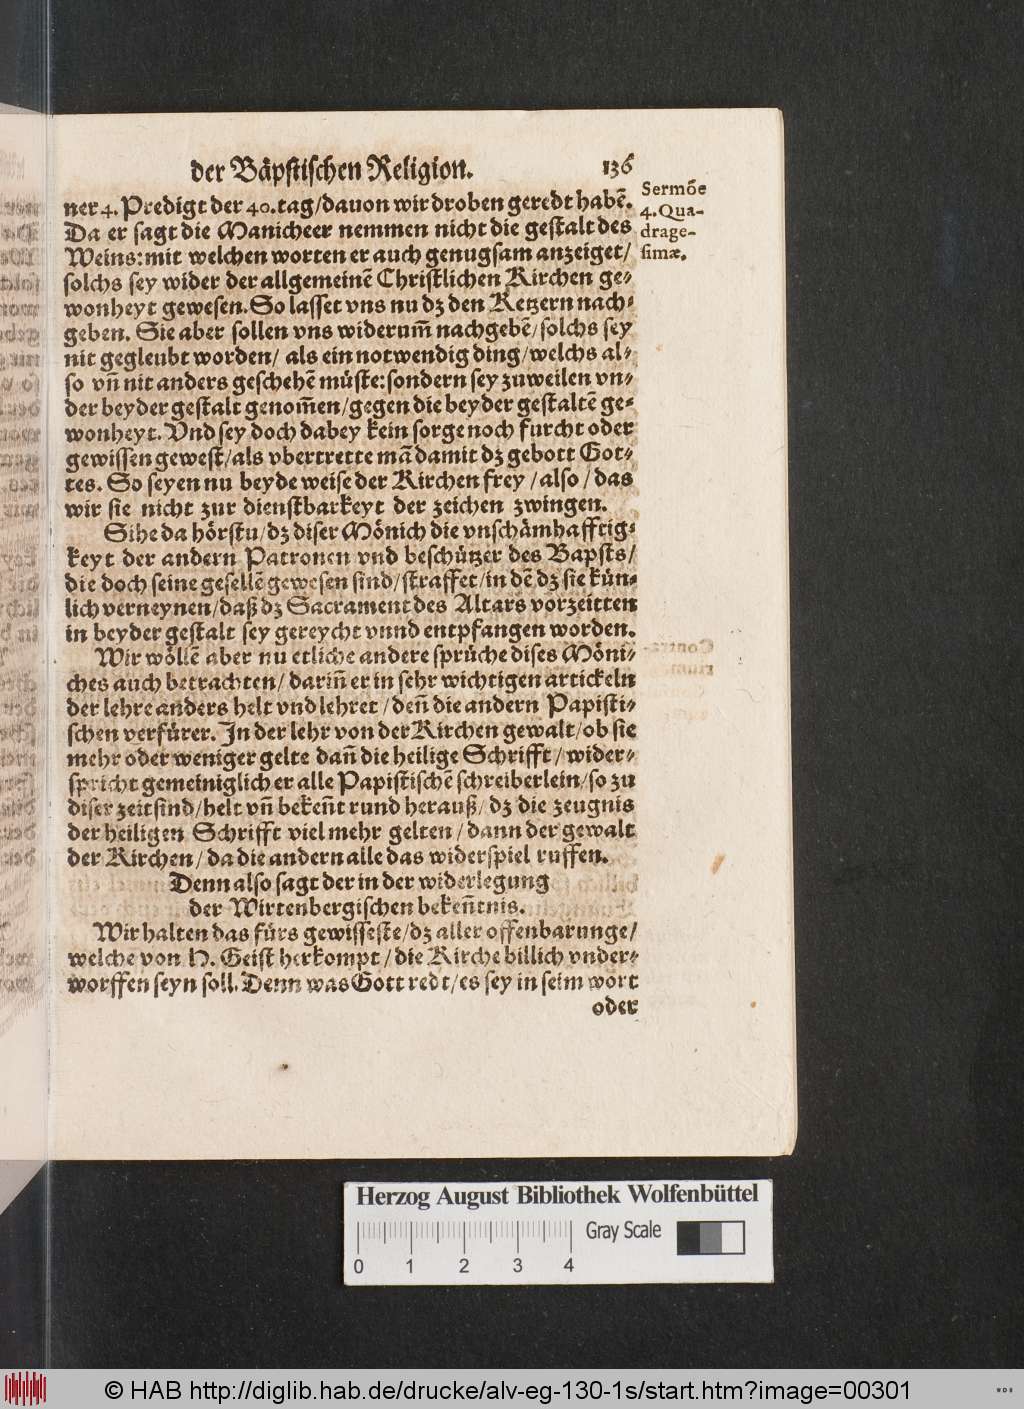 der Bäpstischen Religion. 136
ner 4. Predigt der 40. tag/ dauon wir droben geredt habẽ.
Da er sagt die Manicheer nemmen nicht die gestalt des
Weins: mit welchen worten er auch genugsam anzeiget/
solchs sey wider der allgemeinẽ Christlichen Kirchen ge-
wonheyt gewesen. So lasset vns nu dz den Ketzern nach-
geben. Sie aber sollen vns widerum̃ nachgebẽ/ solchs sey
nit gegleubt worden/ als ein notwendig ding/ welchs al-
so vñ nit anders geschehẽ müste: sondern sey zuweilen vn-
der beyder gestalt genom̃en/ gegen die beyder gestaltẽ ge-
wonheyt. Vnd sey doch dabey kein sorge noch furcht oder
gewissen gewest/ als vbertrette mã damit dz gebott Got-
tes. So seyen nu beyde weise der Kirchen frey/ also/ das
wir sie nicht zur dienstbarkeyt der zeichen zwingen.
Sihe da hörstu/ dz diser Mönich die vnschämhafftig-
keyt der andern Patronen vnd beschützer des Bapsts/
die doch seine gesellẽ gewesen sind/ straffet/ in dẽ dz sie kün-
lich verneynen/ daß dz Sacrament des Altars vorzeitten
in beyder gestalt sey gereycht vnnd entpfangen worden.
Wir wöllẽ aber nu etliche andere sprüche dises Möni-
ches auch betrachten/ dariñ er in sehr wichtigen artickeln
der lehre anders helt vnd lehret/ deñ die andern Papisti-
schen verfürer. In der lehr von der Kirchen gewalt/ ob sie
mehr oder weniger gelte dañ die heilige Schrifft/ wider-
spricht gemeiniglich er alle Papistischẽ schreiberlein/ so zu
diser zeit sind/ helt vñ bekeñt rund herauß/ dz die zeugnis
der heiligen Schrifft viel mehr gelten/ dann der gewalt
der Kirchen/ da die andern alle das widerspiel ruffen.
Denn also sagt der in der widerlegung
der Wirtenbergischen bekeñtnis.
Wir halten das fürs gewisseste/ dz aller offenbarunge/
welche von H. Geist herkompt/ die Kirche billich vnder-
worffen seyn soll. Denn was Gott redt/ es sey in seim wort
oder
Sermõe
4. Qua-
drage-
simæ.
Herzog August Bibliothek Wolfenbüttel
Gray Scale
0 1 2 3 4
© HAB http://diglib.hab.de/drucke/alv-eg-130-1s/start.htm?image=00301